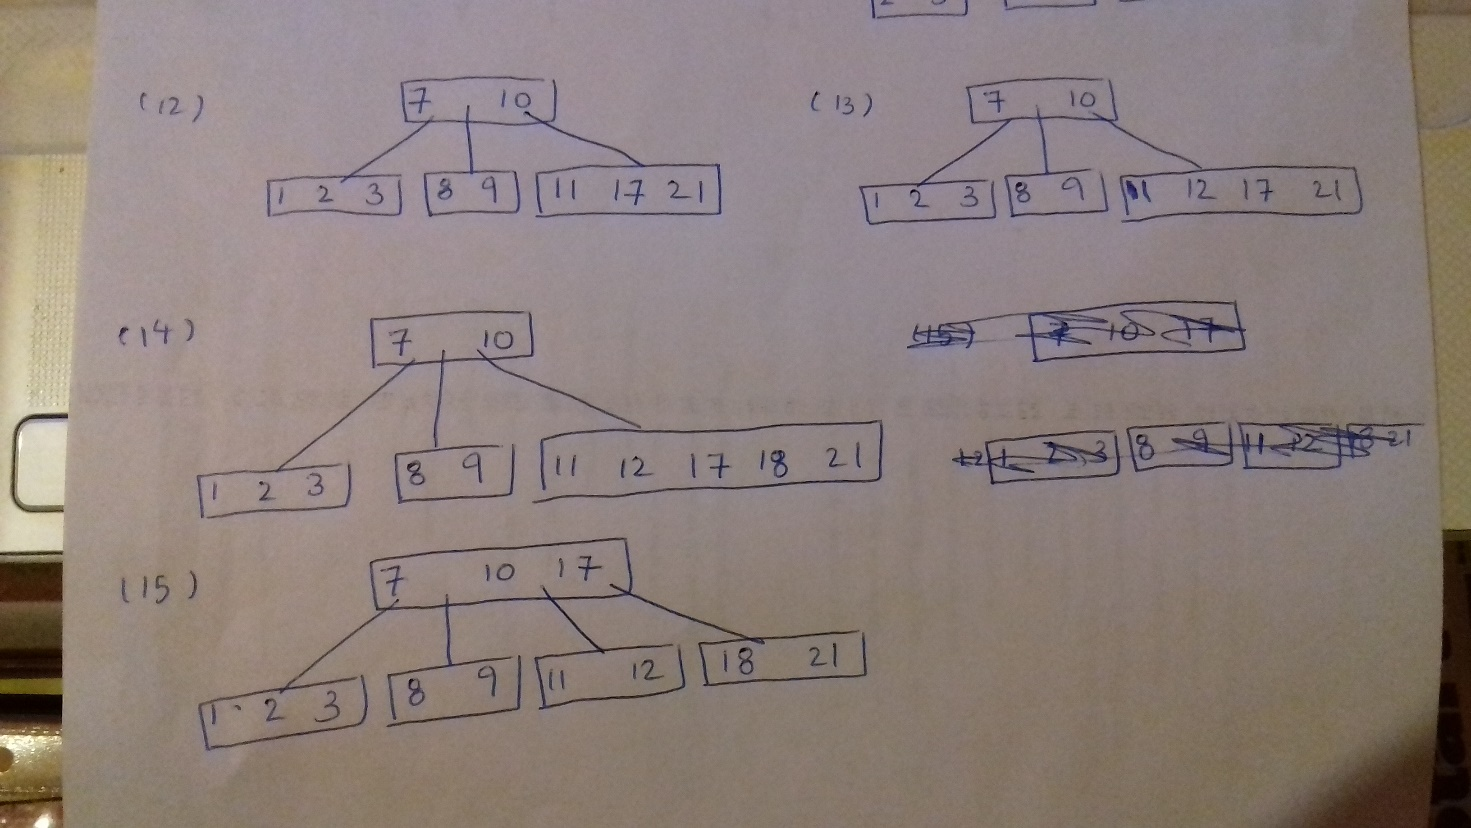 (12) 7 10
1 2 3 8 9 11 17 21
(13) 7 10
1 2 3 8 9 11 12 17 21
(14) 7 10
1 2 3 8 9 11 12 17 18 21
(15) 7 10 17
1 2 3 8 9 11 12
21
(15) 7 10 17
1 2 3 8 9 11 12 18 21